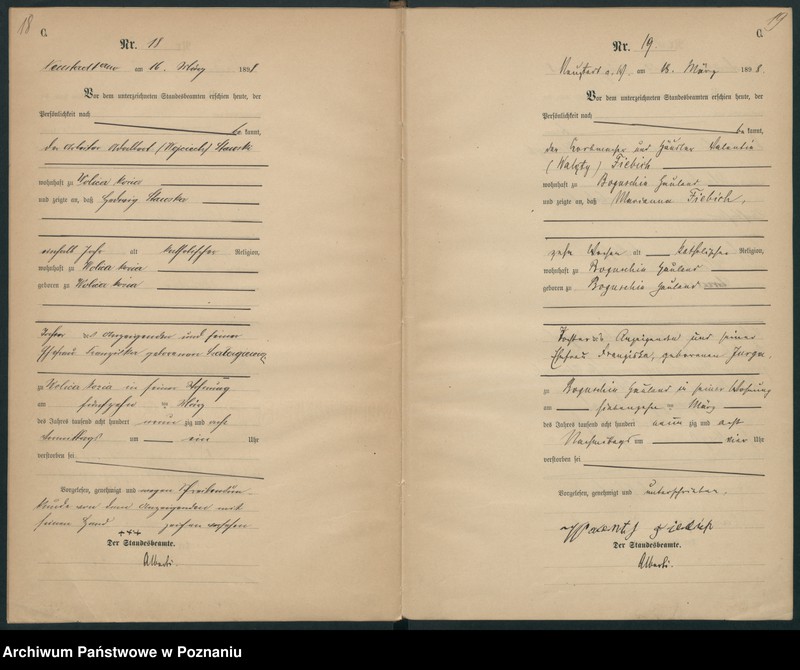 18
C.
Nr. 18
am 16. März 1898
Vor dem unterzeichneten Standesbeamten erschien heute, der
Persönlichkeit nach
be kannt,
der Arbeiter Adalbert (Wojciech)
wohnhaft zu Wolica kozia
und zeigte an, daß Hedwig
alt katholischer Religion,
wohnhaft zu Wolica kozia
geboren zu Wolica kozia
Tochter des Anzeigenden und seiner
Ehefrau Franziska geborenen
zu Wolica kozia in seiner Wohnung
am fünfzehn ten März
des Jahres tausend acht hundert neun zig und acht
um ein Uhr
verstorben sei
Vorgelesen, genehmigt und wegen Schreibens un-
kunde von dem Anzeigenden mit
seinem Handzeichen versehen
+++
Der Standesbeamte.
Alberti.
19
C.
Nr. 19.
Neustadt a. W. am 18. März 1898.
Vor dem unterzeichneten Standesbeamten erschien heute, der
Persönlichkeit nach
be kannt,
der Korbmacher und Häusler Valentin
(Walęty) Fiebich
wohnhaft zu Boguschin Hauland
und zeigte an, daß Marianna Fiebich,
zehn Wochen alt katholischer Religion,
wohnhaft zu Boguschin Hauland
geboren zu Boguschin Hauland
Tochter des Anzeigenden und seiner
Ehefrau Franziska, geborenen
zu Boguschin Hauland in seiner Wohnung
am siebenzehn ten März
des Jahres tausend acht hundert neun zig und acht
Nachmittags um vier Uhr
verstorben sei
Vorgelesen, genehmigt und unterschrieben.
Fiebich
Der Standesbeamte.
Alberti.
Archiwum Państwowe w Poznaniu